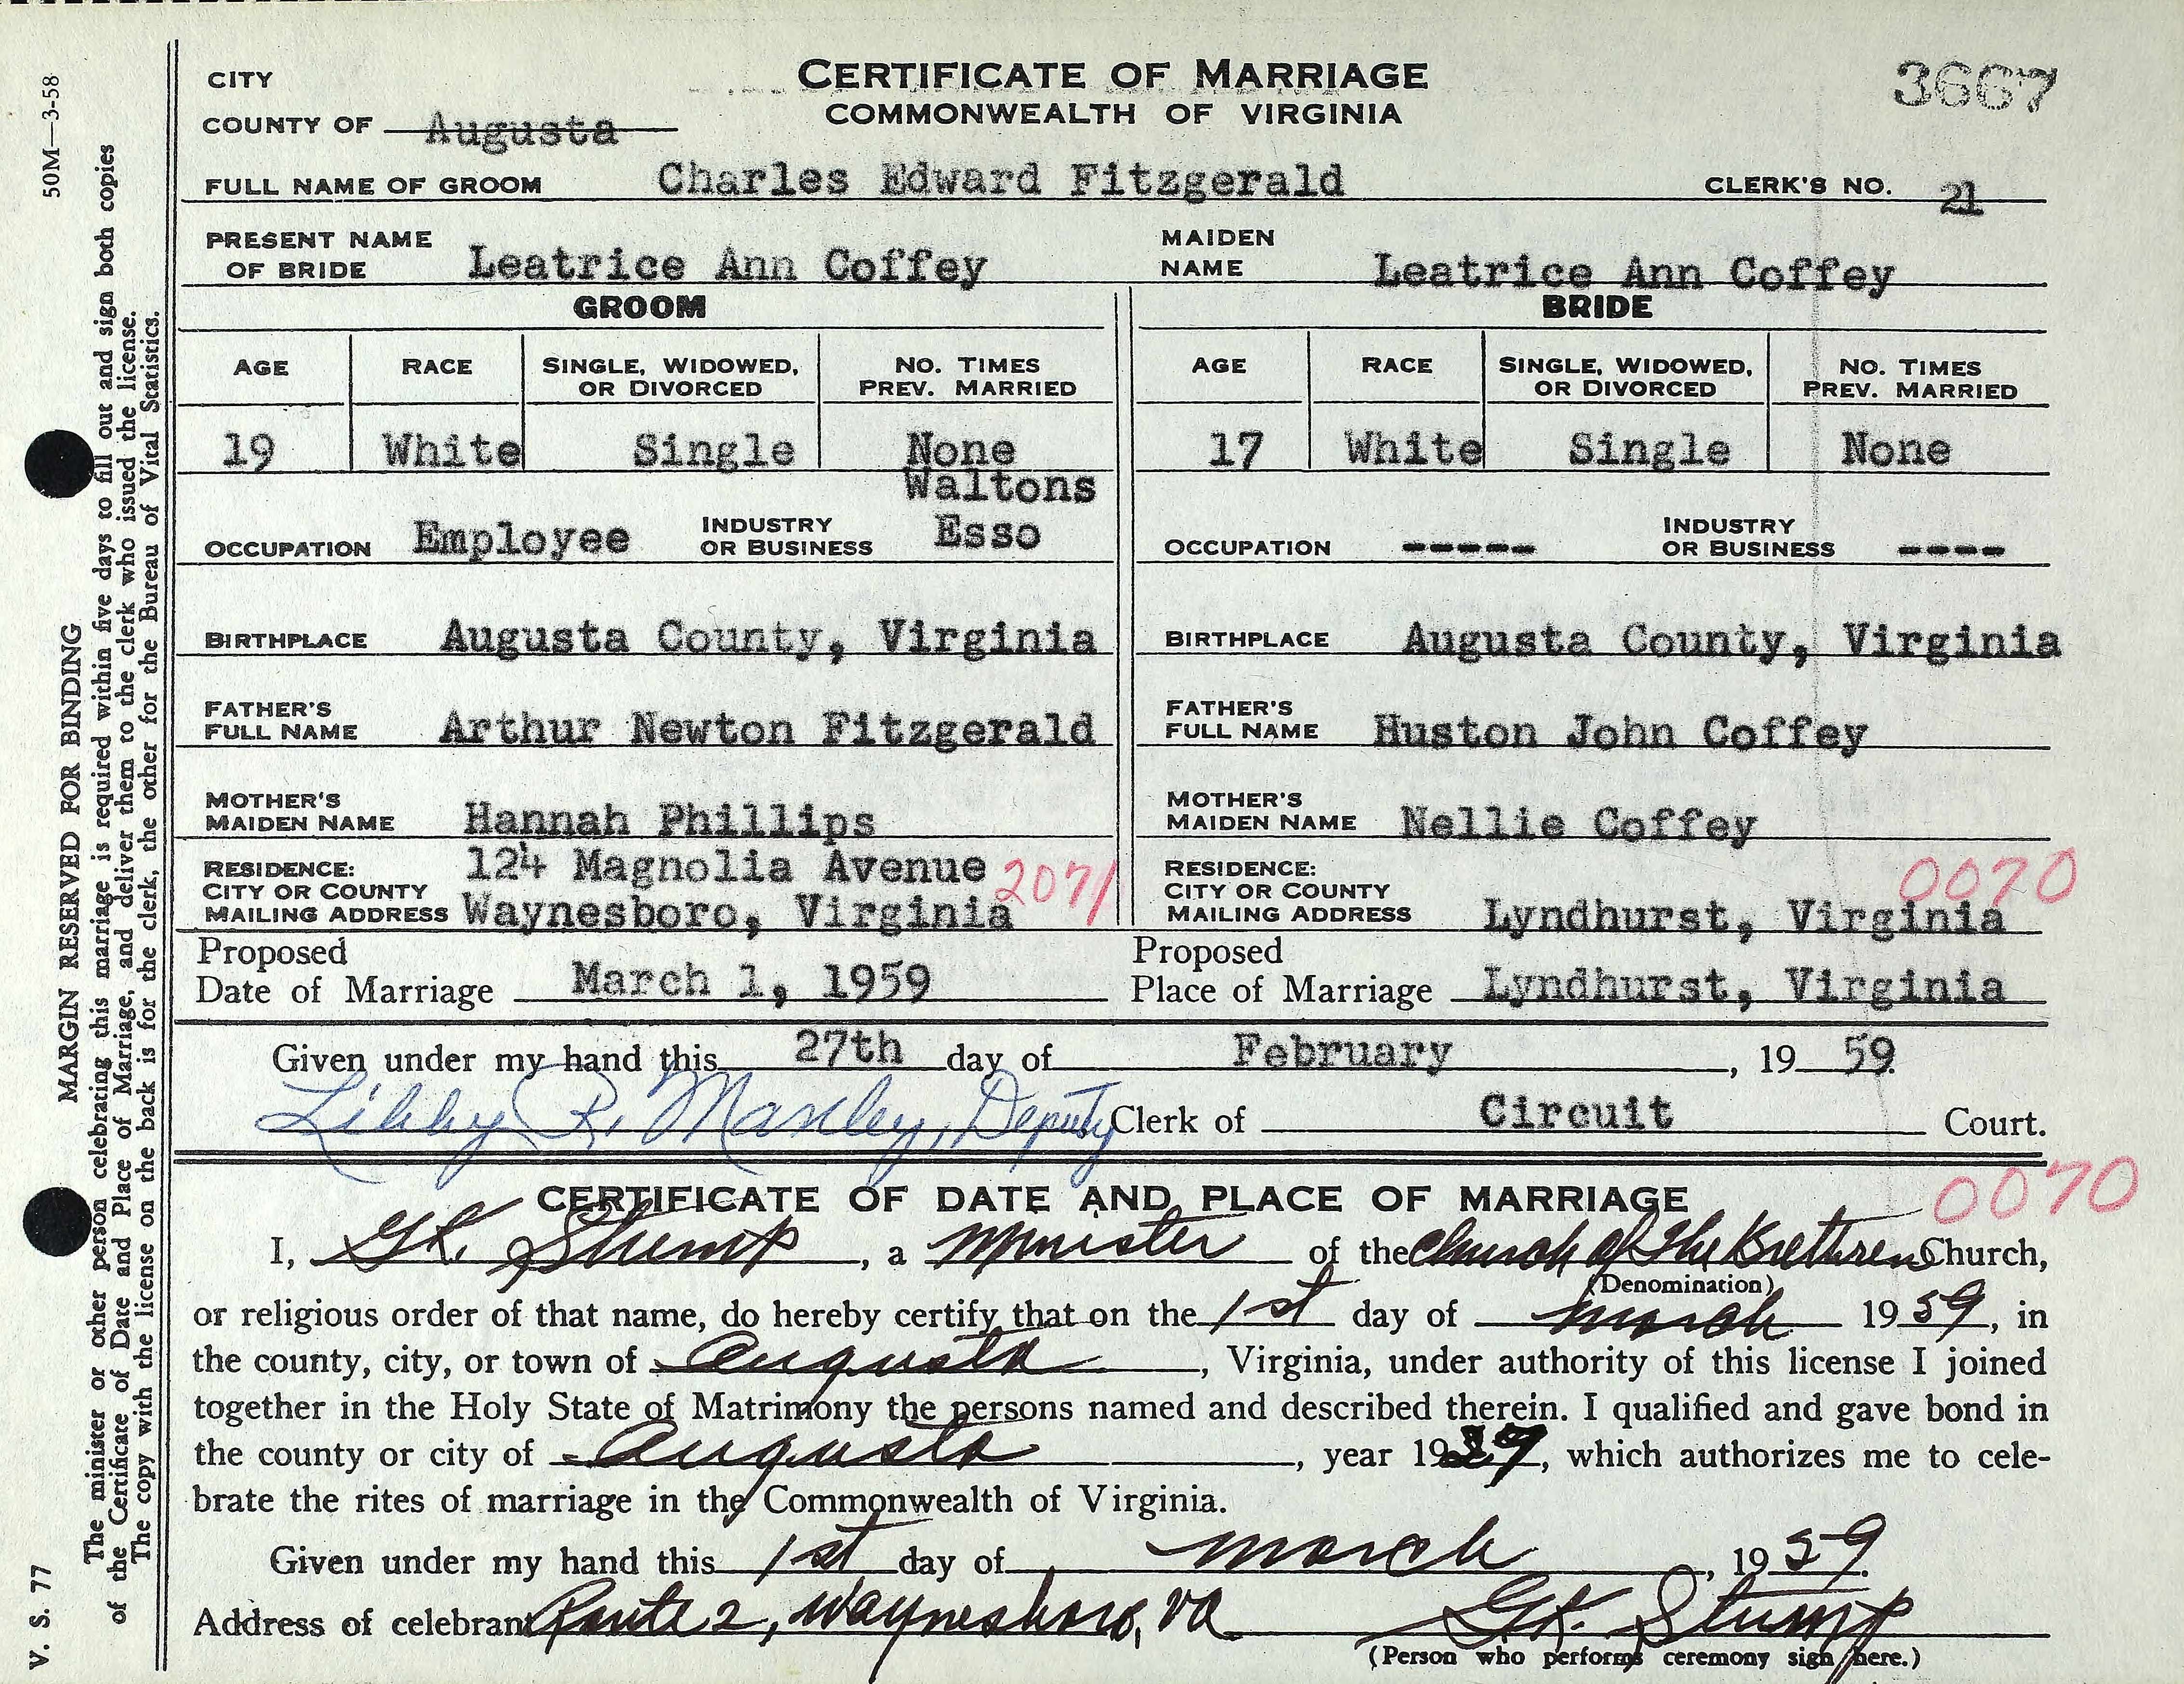 CERTIFICATE OF MARRIAGE
COMMONWEALTH OF VIRGINIA
3667
CITY
COUNTY OF Augusta
FULL NAME OF GROOM Charles Edward Fitzgerald CLERK'S NO. 21
PRESENT NAME OF BRIDE Leatrice Ann Coffey MAIDEN NAME Leatrice Ann Coffey
GROOM BRIDE
AGE RACE SINGLE, WIDOWED, OR DIVORCED NO. TIMES PREV. MARRIED AGE RACE SINGLE, WIDOWED, OR DIVORCED NO. TIMES PREV. MARRIED
19 White Single None 17 White Single None
OCCUPATION Employee INDUSTRY OR BUSINESS Waltons Esso OCCUPATION ----- INDUSTRY OR BUSINESS ----
BIRTHPLACE Augusta County, Virginia BIRTHPLACE Augusta County, Virginia
FATHER'S FULL NAME Arthur Newton Fitzgerald FATHER'S FULL NAME Huston John Coffey
MOTHER'S MAIDEN NAME Hannah Phillips MOTHER'S MAIDEN NAME Nellie Coffey
RESIDENCE: CITY OR COUNTY MAILING ADDRESS 124 Magnolia Avenue Waynesboro, Virginia 2071 RESIDENCE: CITY OR COUNTY MAILING ADDRESS Lyndhurst, Virginia 0070
Proposed Date of Marriage March 1, 1959 Proposed Place of Marriage Lyndhurst, Virginia
Given under my hand this 27th day of February, 19 59
Libby R. Manley, Deputy Clerk of Circuit Court.
CERTIFICATE OF DATE AND PLACE OF MARRIAGE 0070
I, G.K. Stump, a Minister of the Church of The Brethren Church,
(Denomination)
or religious order of that name, do hereby certify that on the 1st day of March 19 59, in
the county, city, or town of Augusta, Virginia, under authority of this license I joined
together in the Holy State of Matrimony the persons named and described therein. I qualified and gave bond in
the county or city of Augusta, year 19, which authorizes me to cele-
brate the rites of marriage in the Commonwealth of Virginia.
Given under my hand this 1st day of March, 19 59.
Address of celebrant Route 2, Waynesboro, Va G.K. Stump
(Person who performs ceremony sign here.)
50M—3-58
MARGIN RESERVED FOR BINDING
V. S. 77
The minister or other person celebrating this marriage is required within five days to fill out and sign both copies
of the Certificate of Date and Place of Marriage, and deliver them to the clerk who issued the license.
The copy with the license on the back is for the clerk, the other for the Bureau of Vital Statistics.